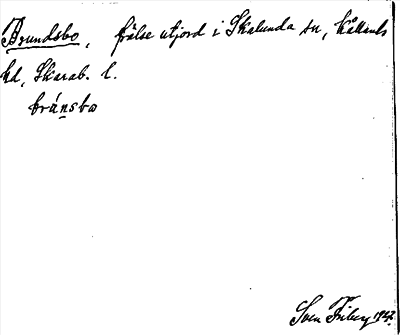 Brundsbo, frälse utjord i Skalunda sn, Kållands
hd, Skarab. l.
bránsbo
Sven Friberg 1947.